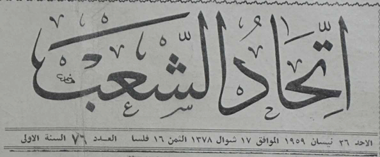 اتحاد الشعب
الاحد ٢٦ نيسان ١٩٥٩ الموافق ١٧ شوال ١٣٧٨ الثمن ١٦ فلسا العدد ٧٦ السنة الاولى